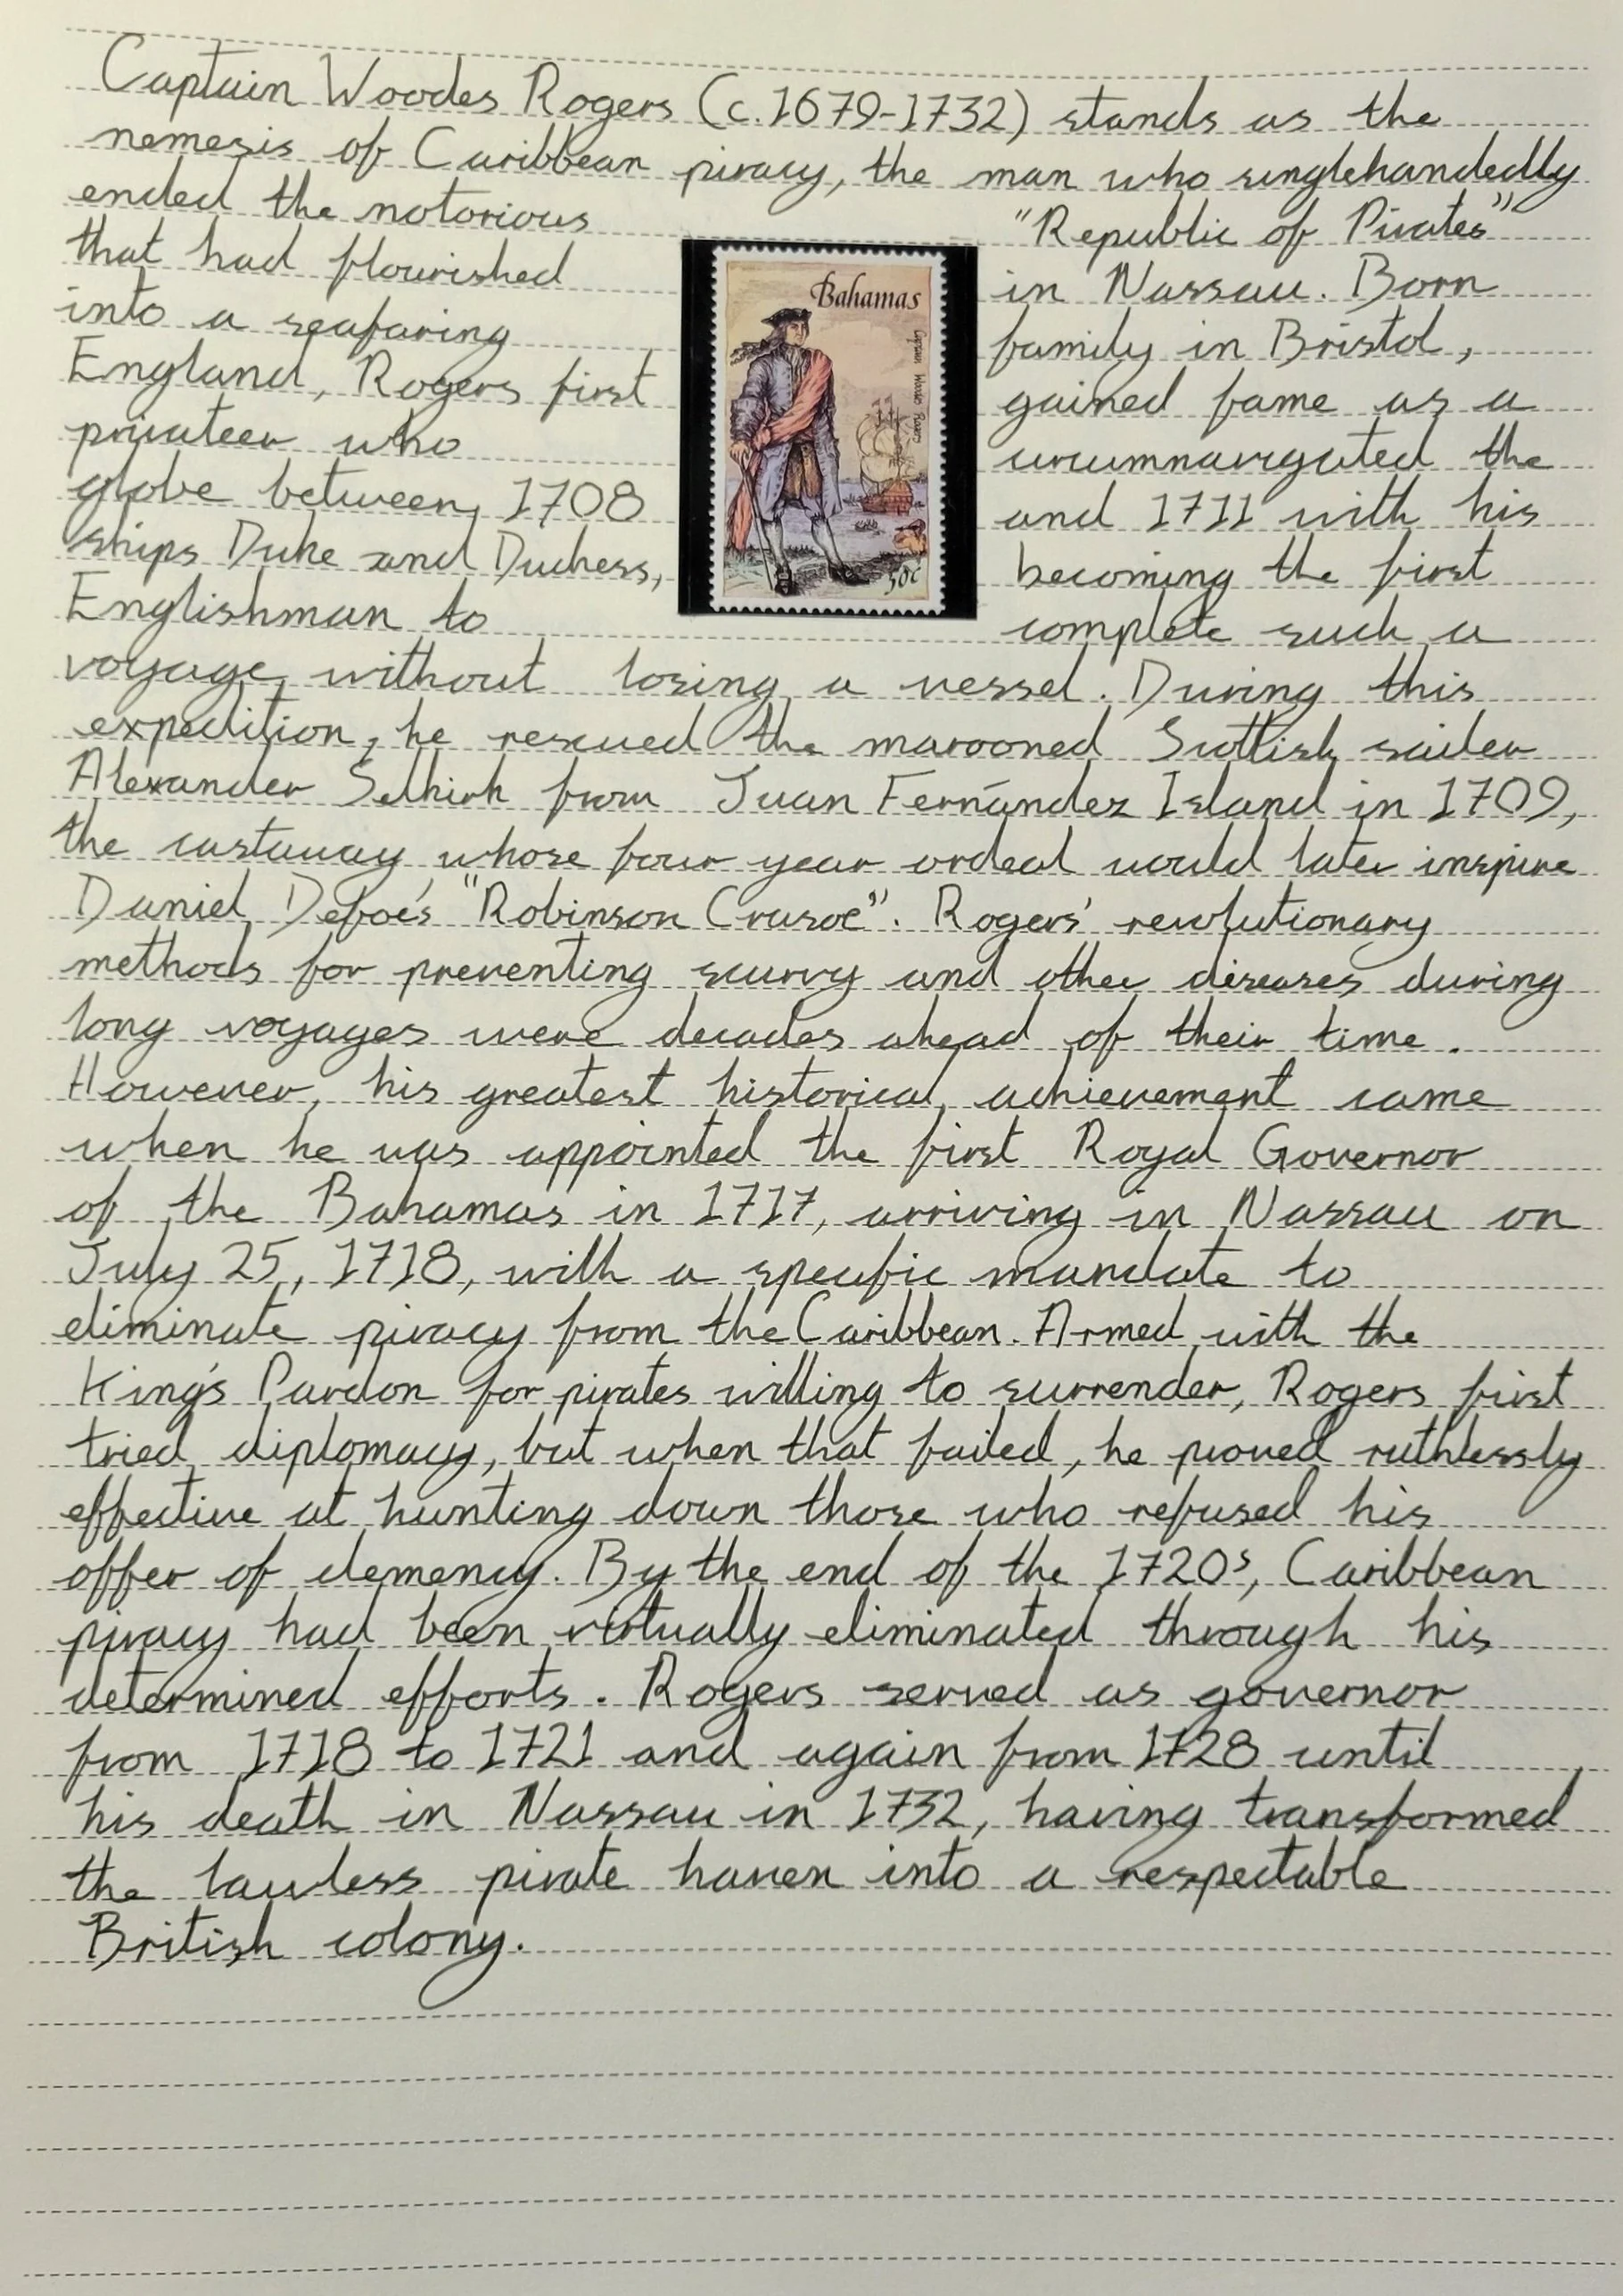 Captain Woodes Rogers (c.1679-1732) stands as the
nemesis of Caribbean piracy, the man who singlehandedly
ended the notorious "Republic of Pirates"
that had flourished in Nassau. Born
into a seafaring family in Bristol,
England, Rogers first gained fame as a
privateer who circumnavigated the
globe between 1708 and 1711 with his
ships Duke and Duchess, becoming the first
Englishman to complete such a
voyage without losing a vessel. During this
expedition, he rescued the marooned Scottish sailer
Alexander Selkirk from Juan Fernández Island in 1709,
the castaway whose four year ordeal would later inspire
Daniel Defoe's "Robinson Crusoe". Rogers' revolutionary
methods for preventing scurvy and other diseases during
long voyages were decades ahead of their time.
However, his greatest historical achievement came
when he was appointed the first Royal Governor
of the Bahamas in 1717, arriving in Nassau on
July 25, 1718, with a specific mandate to
eliminate piracy from the Caribbean. Armed with the
King's Pardon for pirates willing to surrender, Rogers first
tried diplomacy, but when that failed, he proved ruthlessly
effective at hunting down those who refused his
offer of clemency. By the end of the 1720s, Caribbean
piracy had been virtually eliminated through his
determined efforts. Rogers served as governor
from 1718 to 1721 and again from 1728 until
his death in Nassau in 1732, having transformed
the lawless pirate haven into a respectable
British colony.
Bahamas
Captain Woodes Rogers
50c